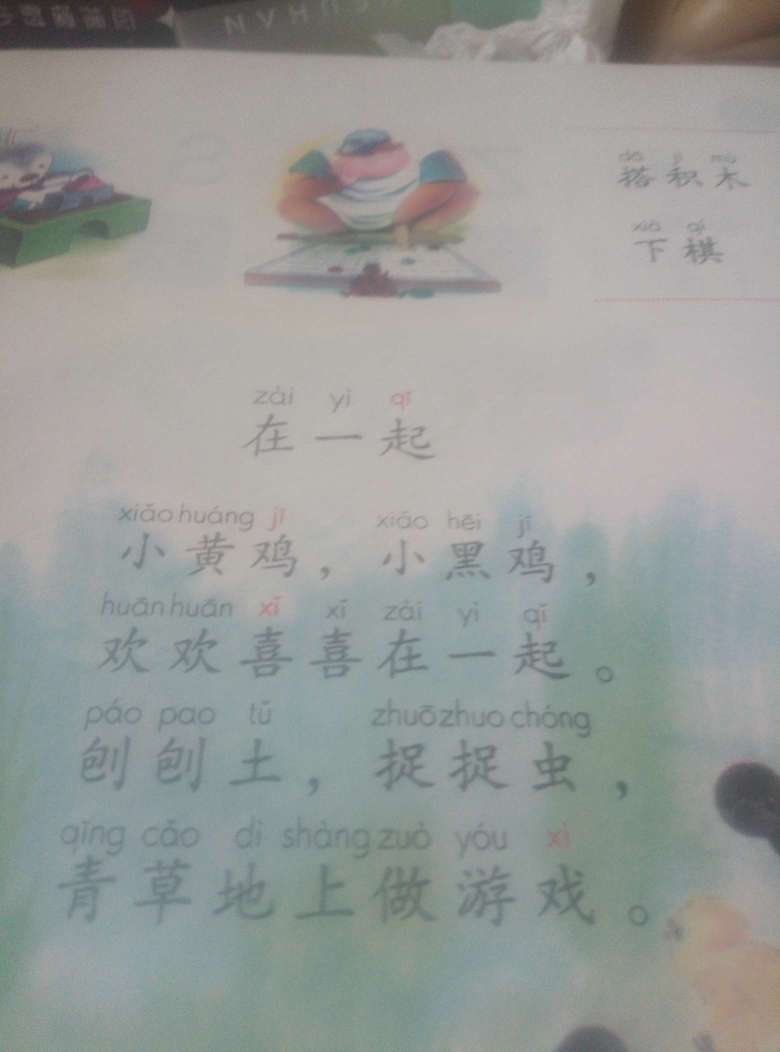 dā jī mù
搭积木
xià qí
下棋
zài yì qǐ
在一起
xiǎo huáng jī xiǎo hēi jī
小黄鸡，小黑鸡，
huān huān xǐ xǐ zài yì qǐ
欢欢喜喜在一起。
páo pao tǔ zhuō zhuo chóng
刨刨土，捉捉虫，
qīng cǎo dì shàng zuò yóu xì
青草地上做游戏。